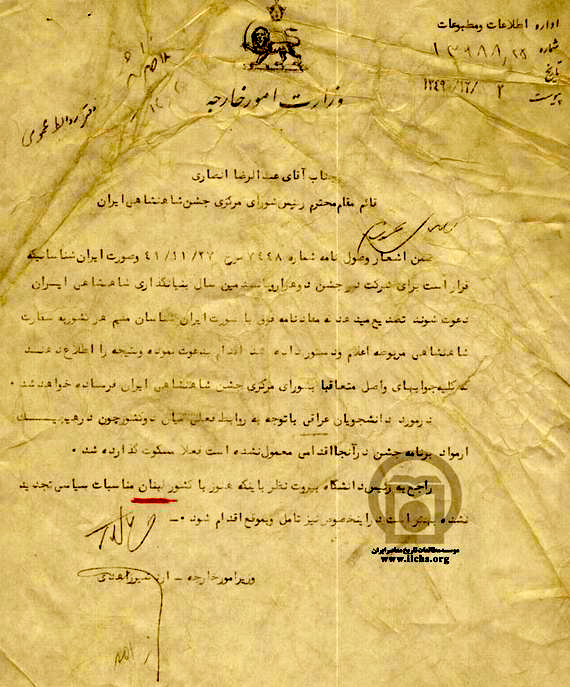 اداره اطلاعات ومطبوعات
شماره
تاریخ ۲ /۱۲/ ۱۳۴۹
پیوست
وزارت امورخارجه
دفتر روابط عمومی
جناب آقای عبدالرضا انصاری
قائم مقام محترم رئیس شورای مرکزی جشن شاهنشاهی ایران
ضمن اشعار وصول نامه شماره ۷۴۴۸ مورخ ۴۱/۱۱/۲۷ وصورت ایران شناسانیکه
قرار است برای شرکت در جشن دوهزاروپانصدمین سال بنیانگذاری شاهنشاهی ایران
دعوت شوند تصدیع میدهد که مفاد نامه فوق با صورت ایران شناسان مقیم هر کشور به سفارت
شاهنشاهی مربوطه اعلام ودستور داده شد اقدام بدعوت نموده ونتیجه را اطلاع دهند
که کلیه جوابهای واصل متعاقبا بشورای مرکزی جشن شاهنشاهی ایران فرستاده خواهد شد ۰
درمورد دانشجویان عراقی باتوجه به روابط فعلی میان دوکشور چون در هیچیک
ازمواد برنامه جشن درآنجا اقدامی معمول نشده است فعلا مسکوت گذارده شد ۰
راجع به رئیس دانشگاه بیروت نظر باینکه هنوز با کشور لبنان مناسبات سیاسی تجدید
نشده بهتر است دراینخصوص نیز تامل وبموقع اقدام شود ۰ـ
وزیر امور خارجه - اردشیر زاهدی
موسسه مطالعات تاریخ معاصر ایران
www.iichs.org